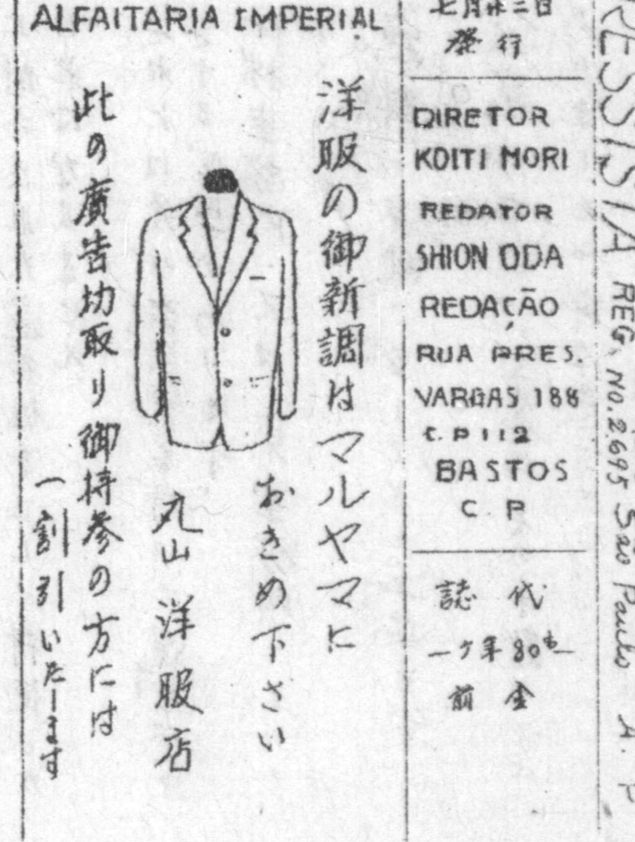 ALFAITARIA IMPERIAL
洋服の御新調はマルヤマに
おきめ下さい
丸山 洋服店
此の廣告切取り御持参の方には
一割引いたします
七月廿二日
発行
DIRETOR
KOITI MORI
REDATOR
SHION ODA
REDAÇÃO
RUA PRES.
VARGAS 188
C.P 112
BASTOS
C P
誌代
一ケ年80
前金
REG, NO.2695 São Paulo A. P